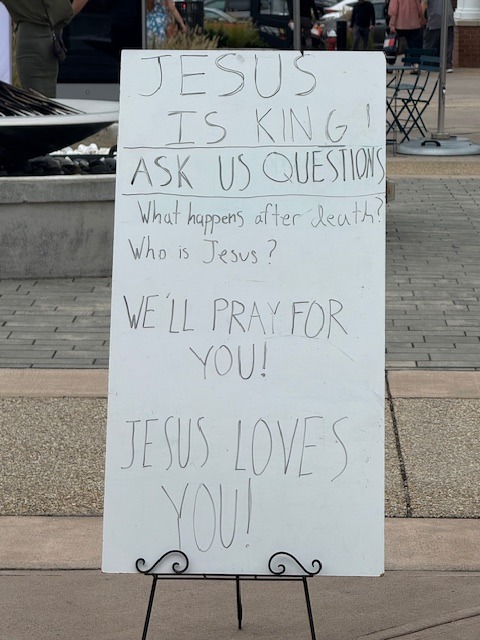 JESUS
IS KING!
ASK US QUESTIONS
What happens after death?
Who is Jesus?
WE'LL PRAY FOR
YOU!
JESUS LOVES
YOU!